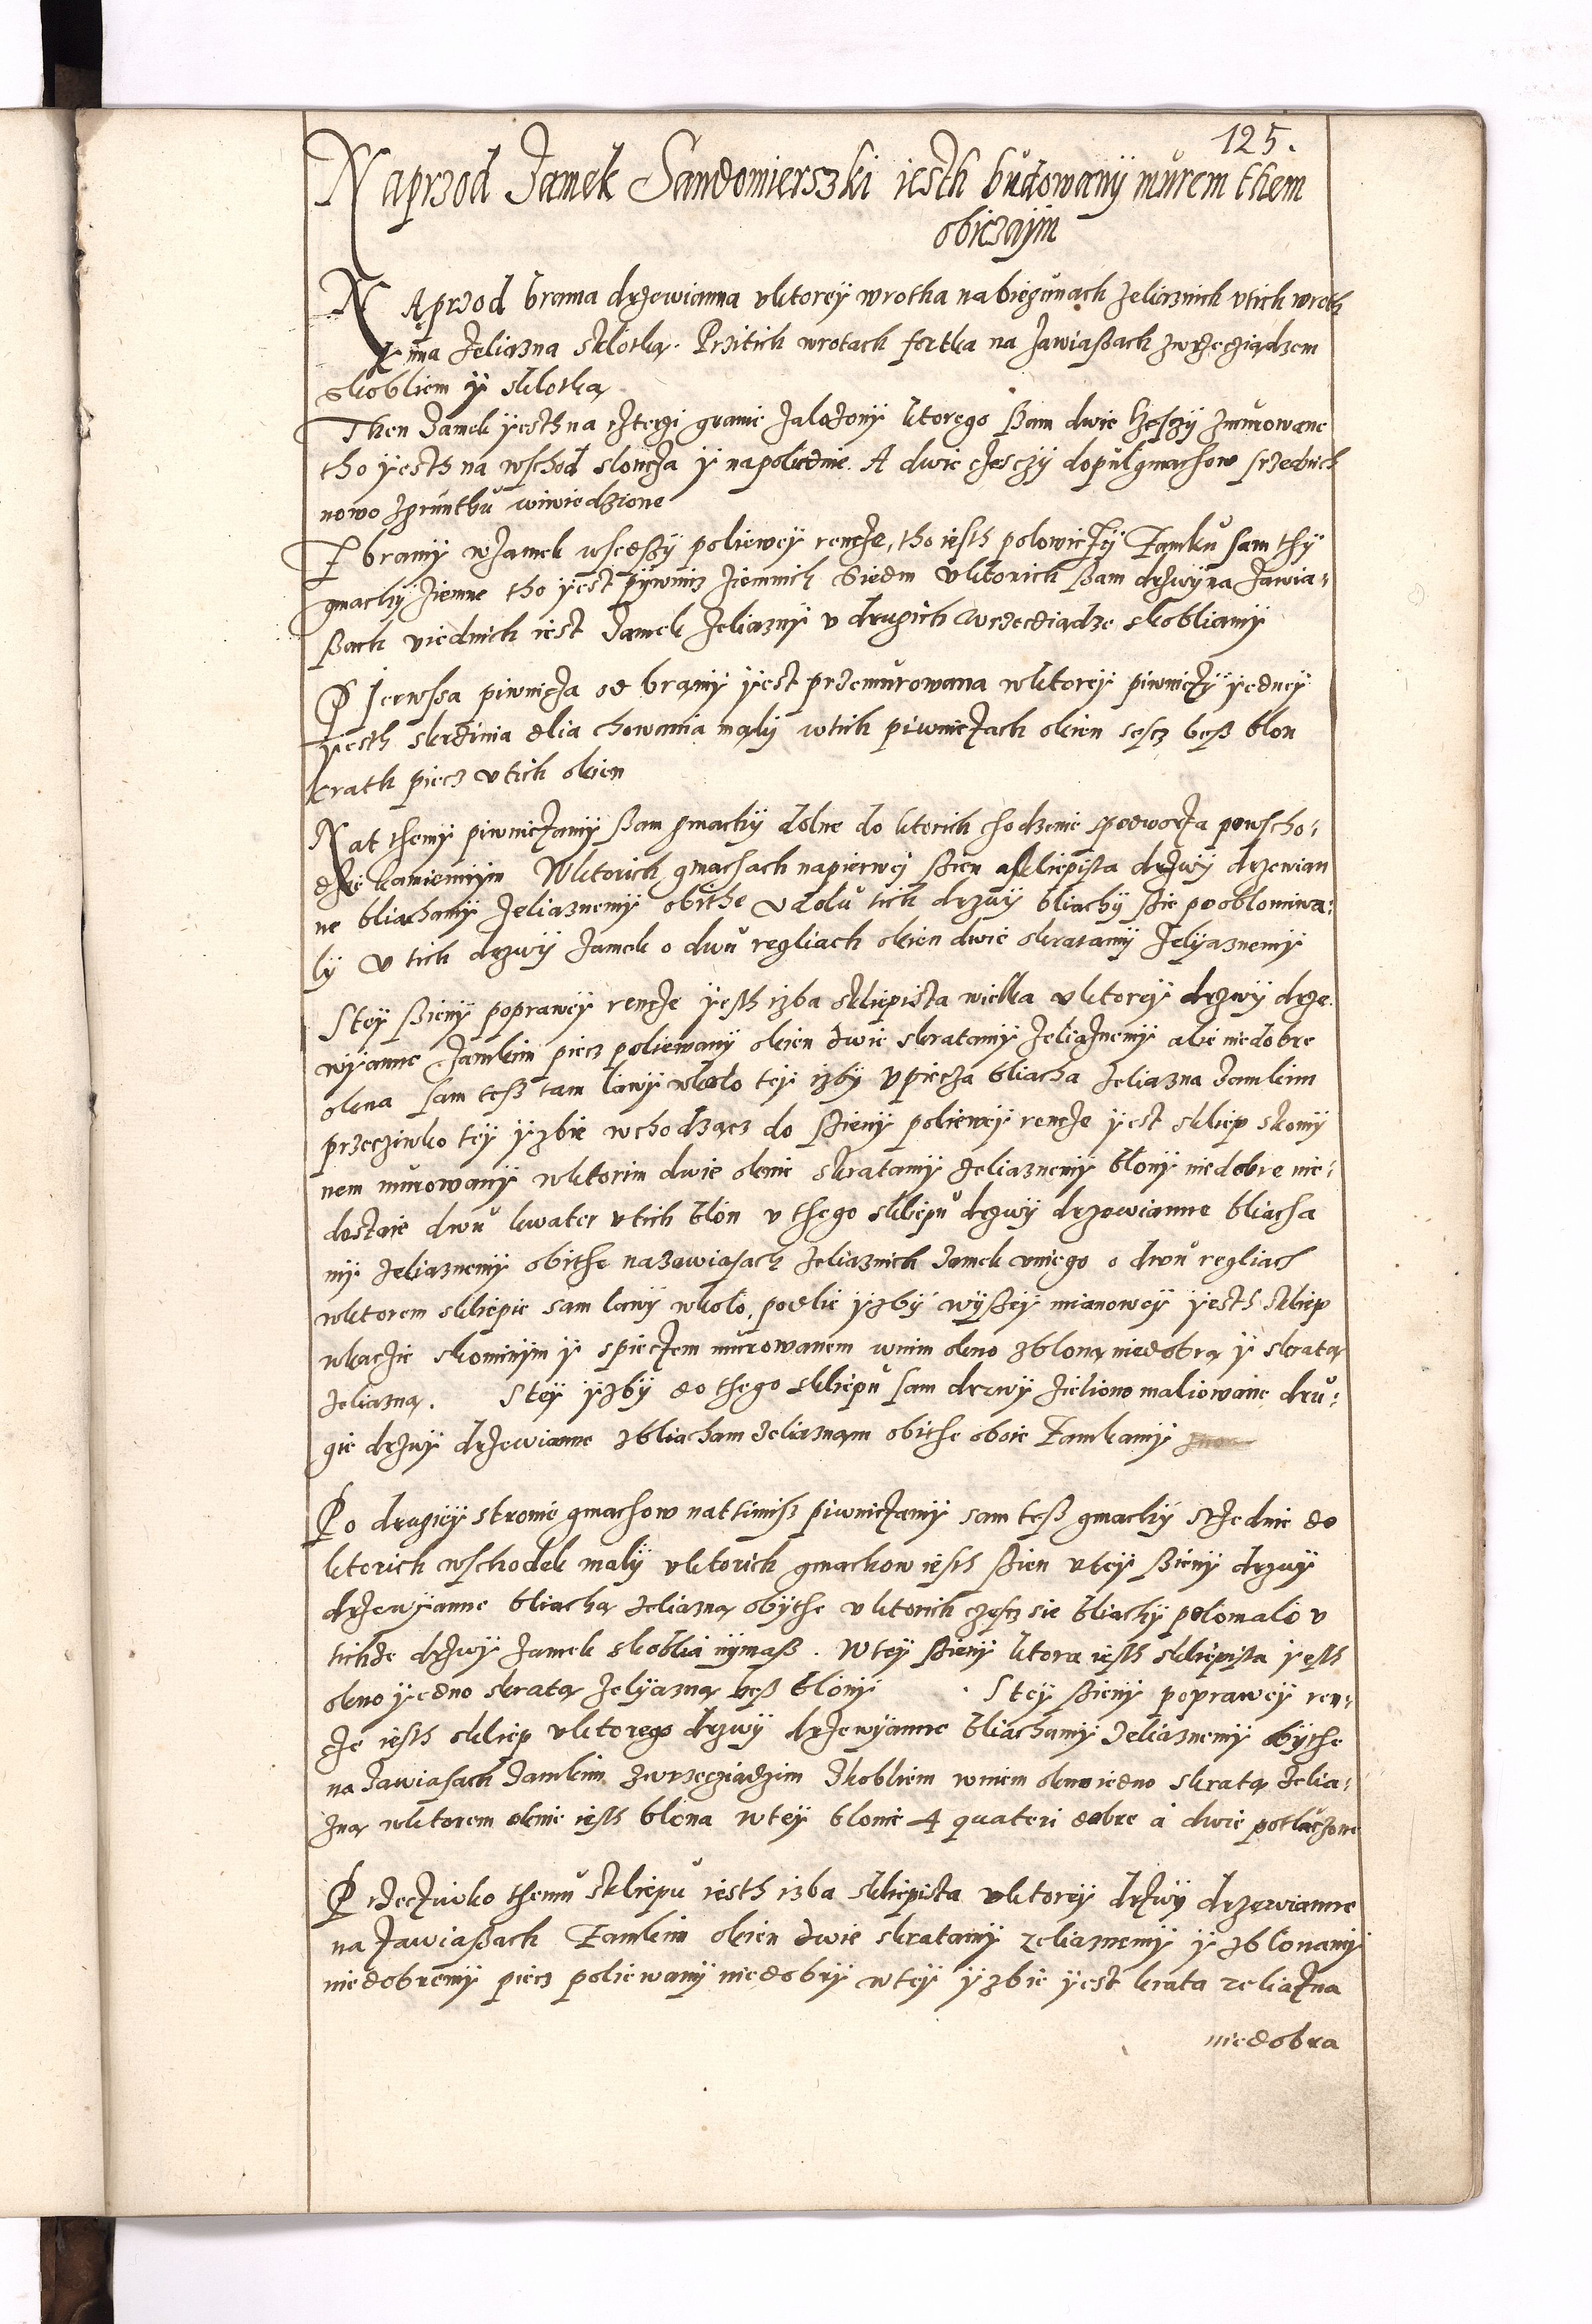 125.
Naprzod Zamek Sandomierszki iesth budowany murem them
obiczaijm
Naprzod brama drzewianna v ktorey wrotha na biegunach zeliaznich v tich wroth
lina zeliazna s klotką. Przi tich wrotach fortka na zawiaßach z wrzeciądzem
skobliem y sklotką
Then Zamek yesth na cztery granie zalozony ktorego ßam dwie czesczy zmurowane
tho yesth na wschod sloncza y na poliednie. A dwie czesczy do pul gmachow srzednich
nowo z gruntku wiwiedzione
Z bramy w Zamek wsedßy po liewey rencze, tho iesth polowiczy Zamku sam thy
gmachy ziemne tho yest pywnicz ziemnich siedm v ktorich ßam drzwy na zawia-
ßach v iednich iest Zamek zeliazny v drugich wrzecziądze skobliamy
Pierwssa piwnicza od bramy yest przemurowana w ktorey piwniczy yedney
yiesth skrzinia dlia chowania maly w tich piwniczach okien sescz beß blon
krath piecz v tich okien
Nat themy piwniczamy ßam gmachy dolne do ktorich chodzenie s podworza po wscho-
dzie kamiennym W ktorich gmachach napierwej ßien a skliepista drzwy drzewian
ne bliachamy zeliaznemy obithe v dolu tich drzwy bliachy ßie poobłomiwa-
ly v tich drzwy Zamek o dwu regliach okien dwie s kratamy zelyaznemy
S tey ßieny po prawey rencze yesth izba skliepista wielka v ktorey drzwy drze-
wyanne zamkim piecz poliewany okien dwie s kratamy zeliaznemy alie niedobre
okna sam teß tam lawy wkolo tej izby v piecza bliacha zeliazna zamkim
przeczinko tey yzbie wchodzącz do ßieny po liewey rencze yest skliep s komy
nem murowany w ktorim dwie oknie s kratamy zeliaznemy błony niedobre nie-
dostaie dwu kwater v tich błon v thego skliepu drzwy drzewianne bliacha
my zeliaznemy obithe na zawiasach zeliaznich Zamek v niego o dwu regliach
w ktorem skliepie sam lawy wkolo, podlie yzby wyßey mianowey yesth skliep
w kacie s kominym y s pieczem murowanem w nim okno z bloną niedobrą y s kratą
zeliazną. S tey yzby do thego skliepu sam drzwy zieliono maliowane dru-
gie drzwy drzewianne z bliacham zeliaznąm obithe oboie Zamkamy
Po drugiey stronie gmachow nat timiß piwniczamy sam teß gmachy srzednie do
ktorich wschodek maly v ktorich gmachow iesth ßien v tey ßieny drzwy
drzewyanne bliachą zeliazną obythe v ktorich czescz sie bliachy polomalo v
tichze drzwy Zamek skoblia nymaß. W tey ßieny ktora iesth skliepista yesth
okno yedno s kratą zelyazną beß błony. S tey ßieny po prawey ren-
cze iesth skliep v ktorego drzwy drzewyanne bliachamy zeliaznemy obythe
na zawiasach Zamkim z wrzecziądzim skobliem w niem okno iedno s kratą zelia-
zną w ktorem oknie iesth błona w tey błonie 4 quateri dobre a dwie potluczone
Przeczinko themu skliepu iesth izba skliepista v ktorey drzwy drzewianne
na zawiaßach Zamkim okien dwie s kratamy zeliaznemy y z blonamy
niedobremy piecz poliewany niedobry w tey yzbie yest krata zeliazna
niedobra